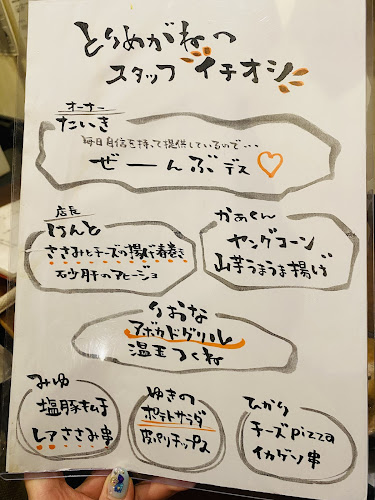 とりめがねっ
スタッフイチオシ
オーナー
たいき
毎日自信を持って提供しているので・・・
ぜーんぶデス
店長
はんと
ささみとチーズの揚げ春巻き
砂肝のアヒージョ
かぁくん
ヤングコーン
山芋うまうま揚げ
りおな
アボカドグリル
温玉つくね
みゆ
塩豚キムチ
レアささみ串
ゆきの
ポテトサラダ
皮ポリチップス
ひかり
チーズpizza
イカゲソ串